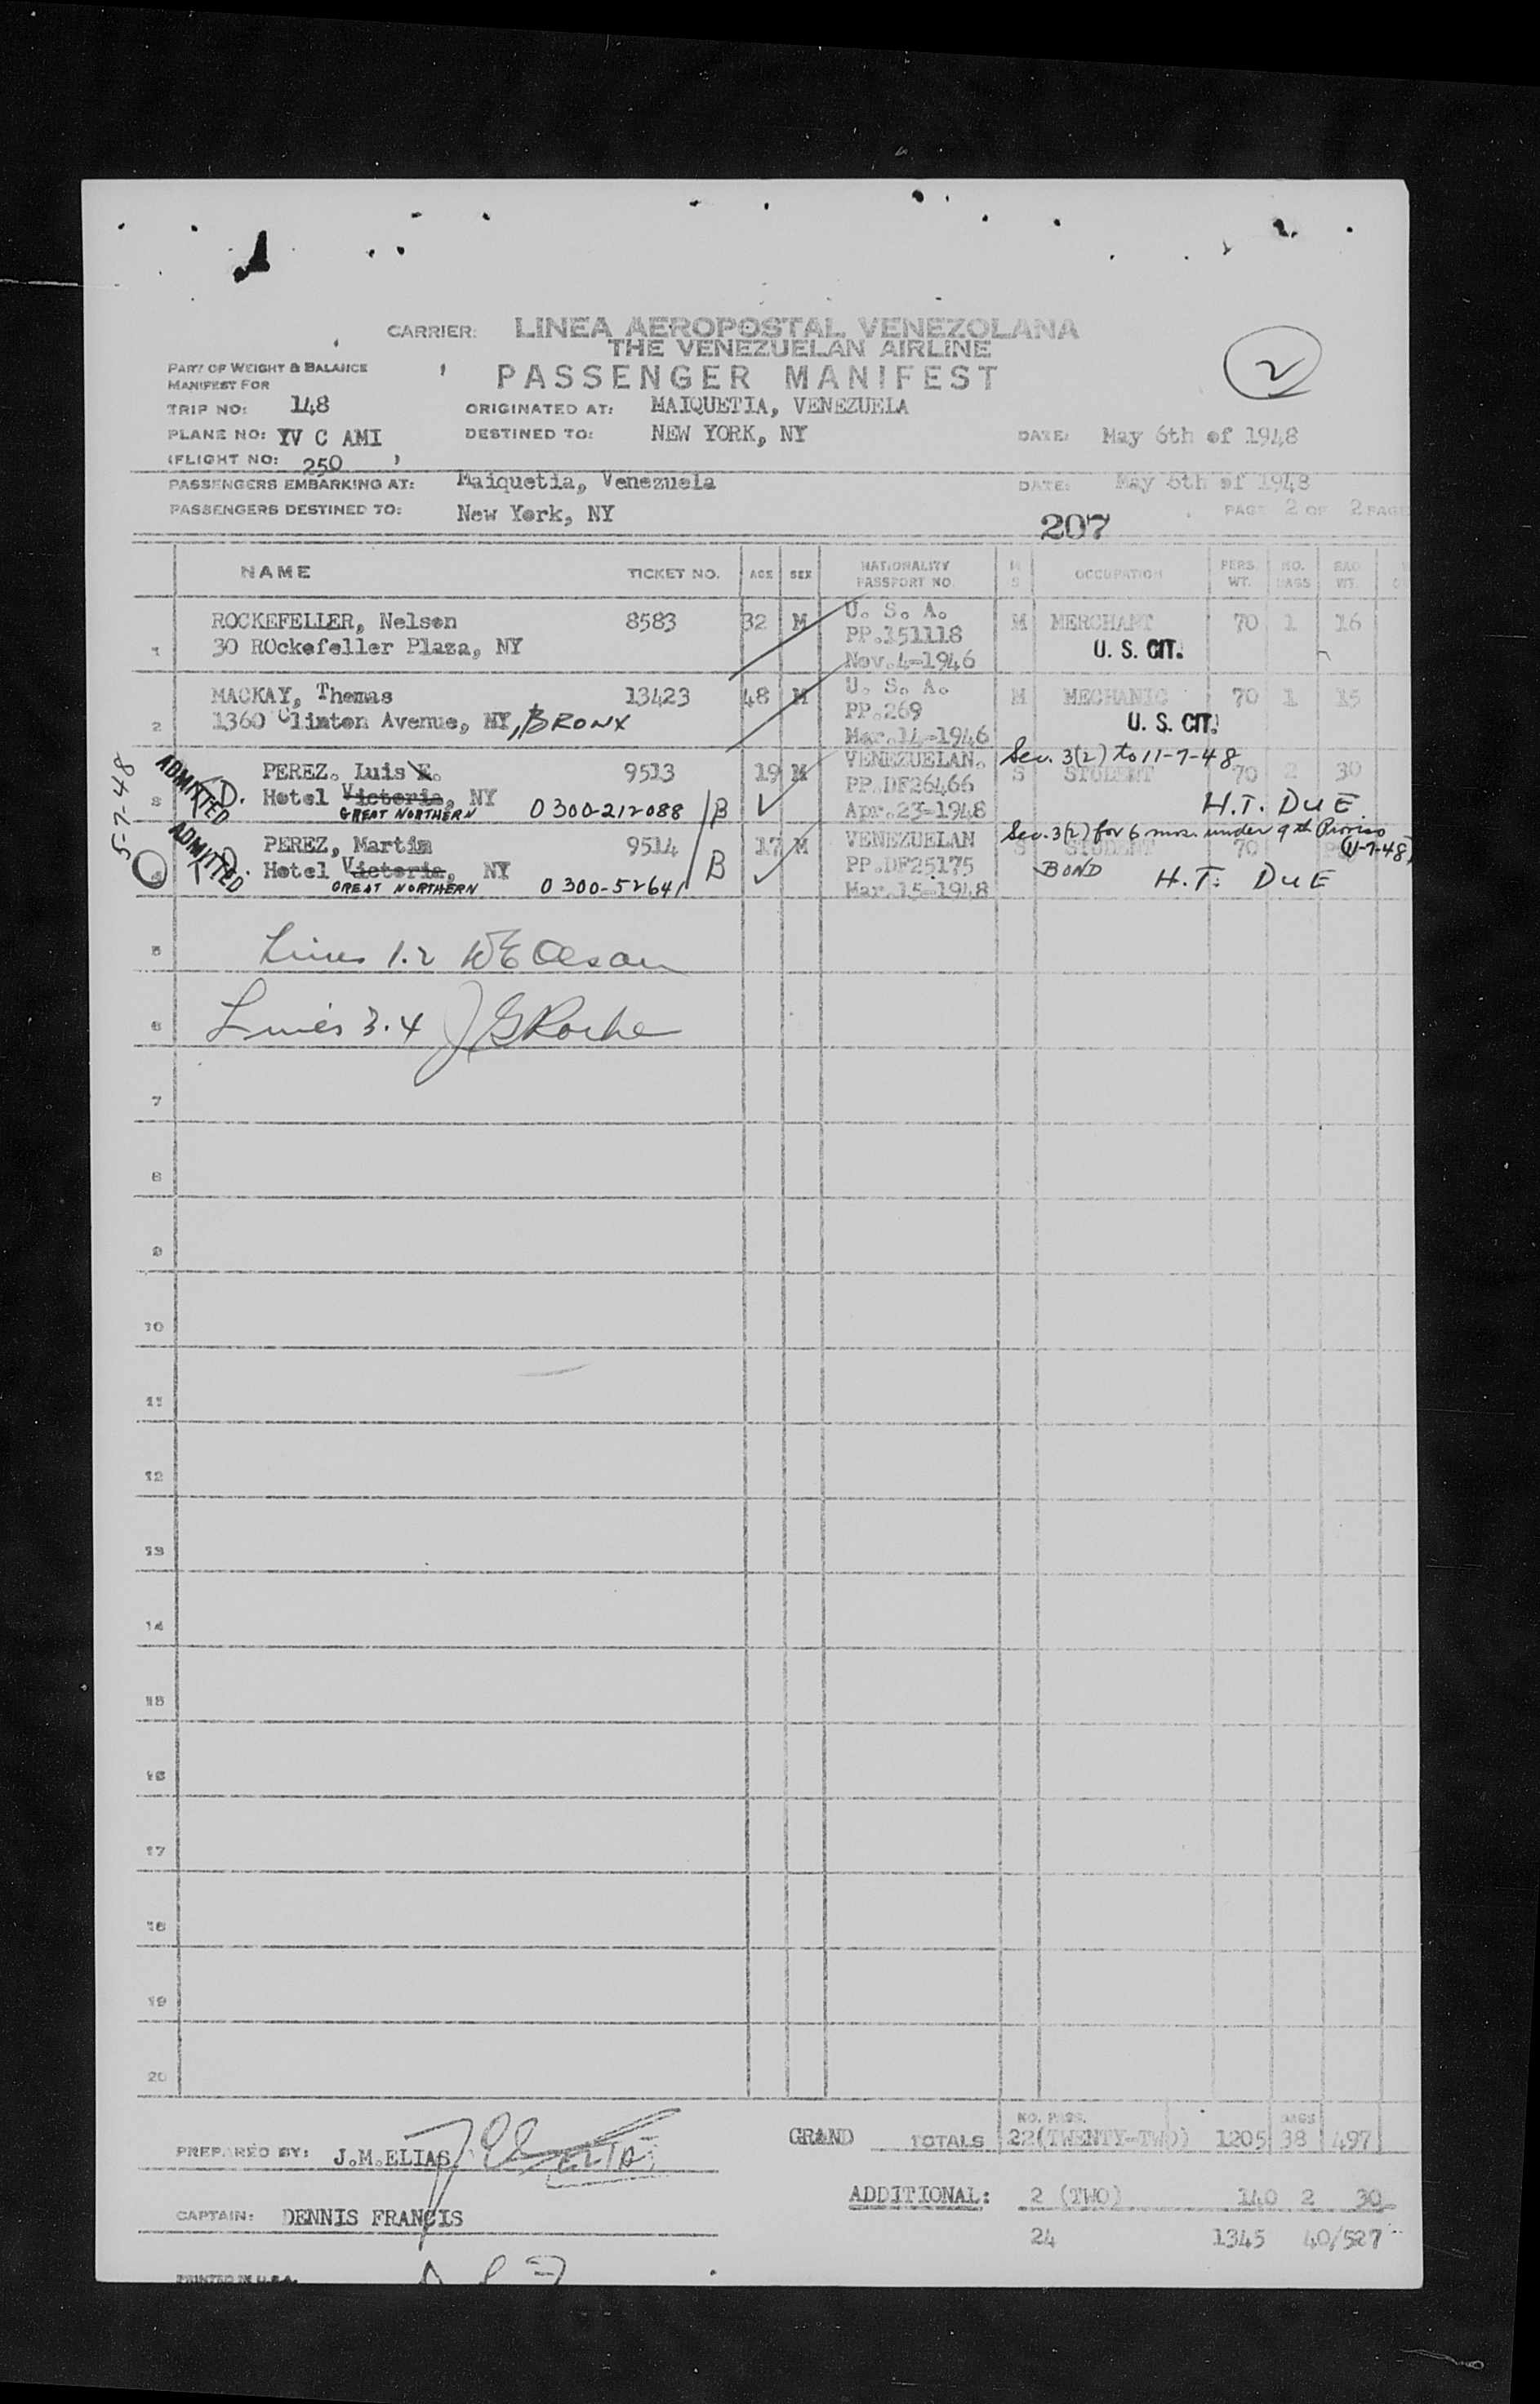 CARRIER: LINEA AEROPOSTAL VENEZOLANA
THE VENEZUELAN AIRLINE
PART OF WEIGHT & BALANCE
MANIFEST FOR
PASSENGER MANIFEST
2
TRIP NO: 148 ORIGINATED AT: MAIQUETIA, VENEZUELA
PLANE NO: YV C AMI DESTINED TO: NEW YORK, NY DATE: May 6th of 1948
(FLIGHT NO: 250 )
PASSENGERS EMBARKING AT: Maiquetia, Venezuela DATE: May 6th of 1948
PASSENGERS DESTINED TO: New York, NY PAGE 2 OF 2 PAGE
207
NAME TICKET NO. AGE SEX NATIONALITY PASSPORT NO. M S OCCUPATION PERS. WT. NO. BAGS BAG WT.
ROCKEFELLER, Nelson 8583 32 M U. S. A. M MERCHANT 70 1 16
1 30 ROckefeller Plaza, NY PP.151118 U. S. CIT.
Nov.4-1946
MACKAY, Thomas 13423 48 M U. S. A. M MECHANIC 70 1 15
2 1360 Clinton Avenue, NY, BRONX PP.269 U. S. CIT.
Mar.14-1946
5-7-48
ADMITTED
PEREZ. Luis E. 9513 19 M VENEZUELAN. S STUDENT 70 2 30
Sec. 3(2) to 11-7-48
3 Hotel Victoria, NY PP.DF26466
GREAT NORTHERN 0300-212088 B Apr.23-1948 H.T. DUE
ADMITTED
PEREZ, Martin 9514 17 M VENEZUELAN S STUDENT 70
Sec. 3(2) for 6 mos. under 9th Proviso
(11-7-48)
4 Hotel Victoria, NY PP.DF25175 BOND H.T. DUE
GREAT NORTHERN 0300-52641 B Mar.15-1948
5 Lines 1.2 WE Olson
6 Lines 3.4 JG Roche
7
8
9
10
11
12
13
14
15
16
17
18
19
20
NO. PASS. BAGS
PREPARED BY: J.M.ELIAS GRAND TOTALS 22(TWENTY-TWO) 1205 38 497
ADDITIONAL: 2 (TWO) 140 2 30
CAPTAIN: DENNIS FRANCIS 24 1345 40/527
PRINTED IN U.S.A.